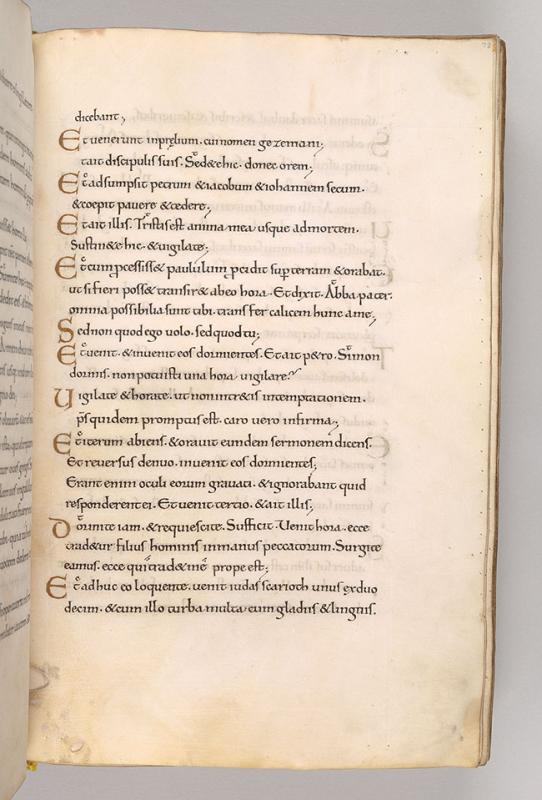 dicebant;
Et uenerunt inpredium. cui nomen gezemani;
et ait discipulis suis. Sedete hic. donec orem;
Et adsumpsit petrum & iacobum & iohannem secum.
& coepit pauere & tedere;
Et ait illis. Tristis est anima mea usque admortem.
Sustin&e hic. & uigilate;
Et cum pcessiss& paululum. pcidit sup terram & orabat.
ut si fieri poss& transir& abeo hora. Et dixit. Abba pater.
omnia possibilia sunt tibi. transfer calicem hunc ame;
Sed non quod ego uolo. sed quod tu;
Et uenit. & inuenit eos dormientes. Et ait p&ro. Simon
dormis. non potuisti una hora uigilare?
Uigilate & horate. ut non intr&is intemptationem.
sps quidem promptus est. caro uero infirma;
Et iterum abiens. & orauit eumdem sermonem dicens.
Et reuersus denuo. inuenit eos dormientes;
Erant enim oculi eorum grauati. & ignorabant quid
responderent ei. Et uenit tertio. & ait illis;
Dormite iam. & requiescite. Sufficit. Uenit hora. ecce
trad&ur filius hominis inmanus peccatorum. Surgite
eamus. ecce qui trad& me. prope est;
Et adhuc eo loquente. uenit iudas scarioth unus exduo
decim. & cum illo turba multa. cum gladiis & lignis.